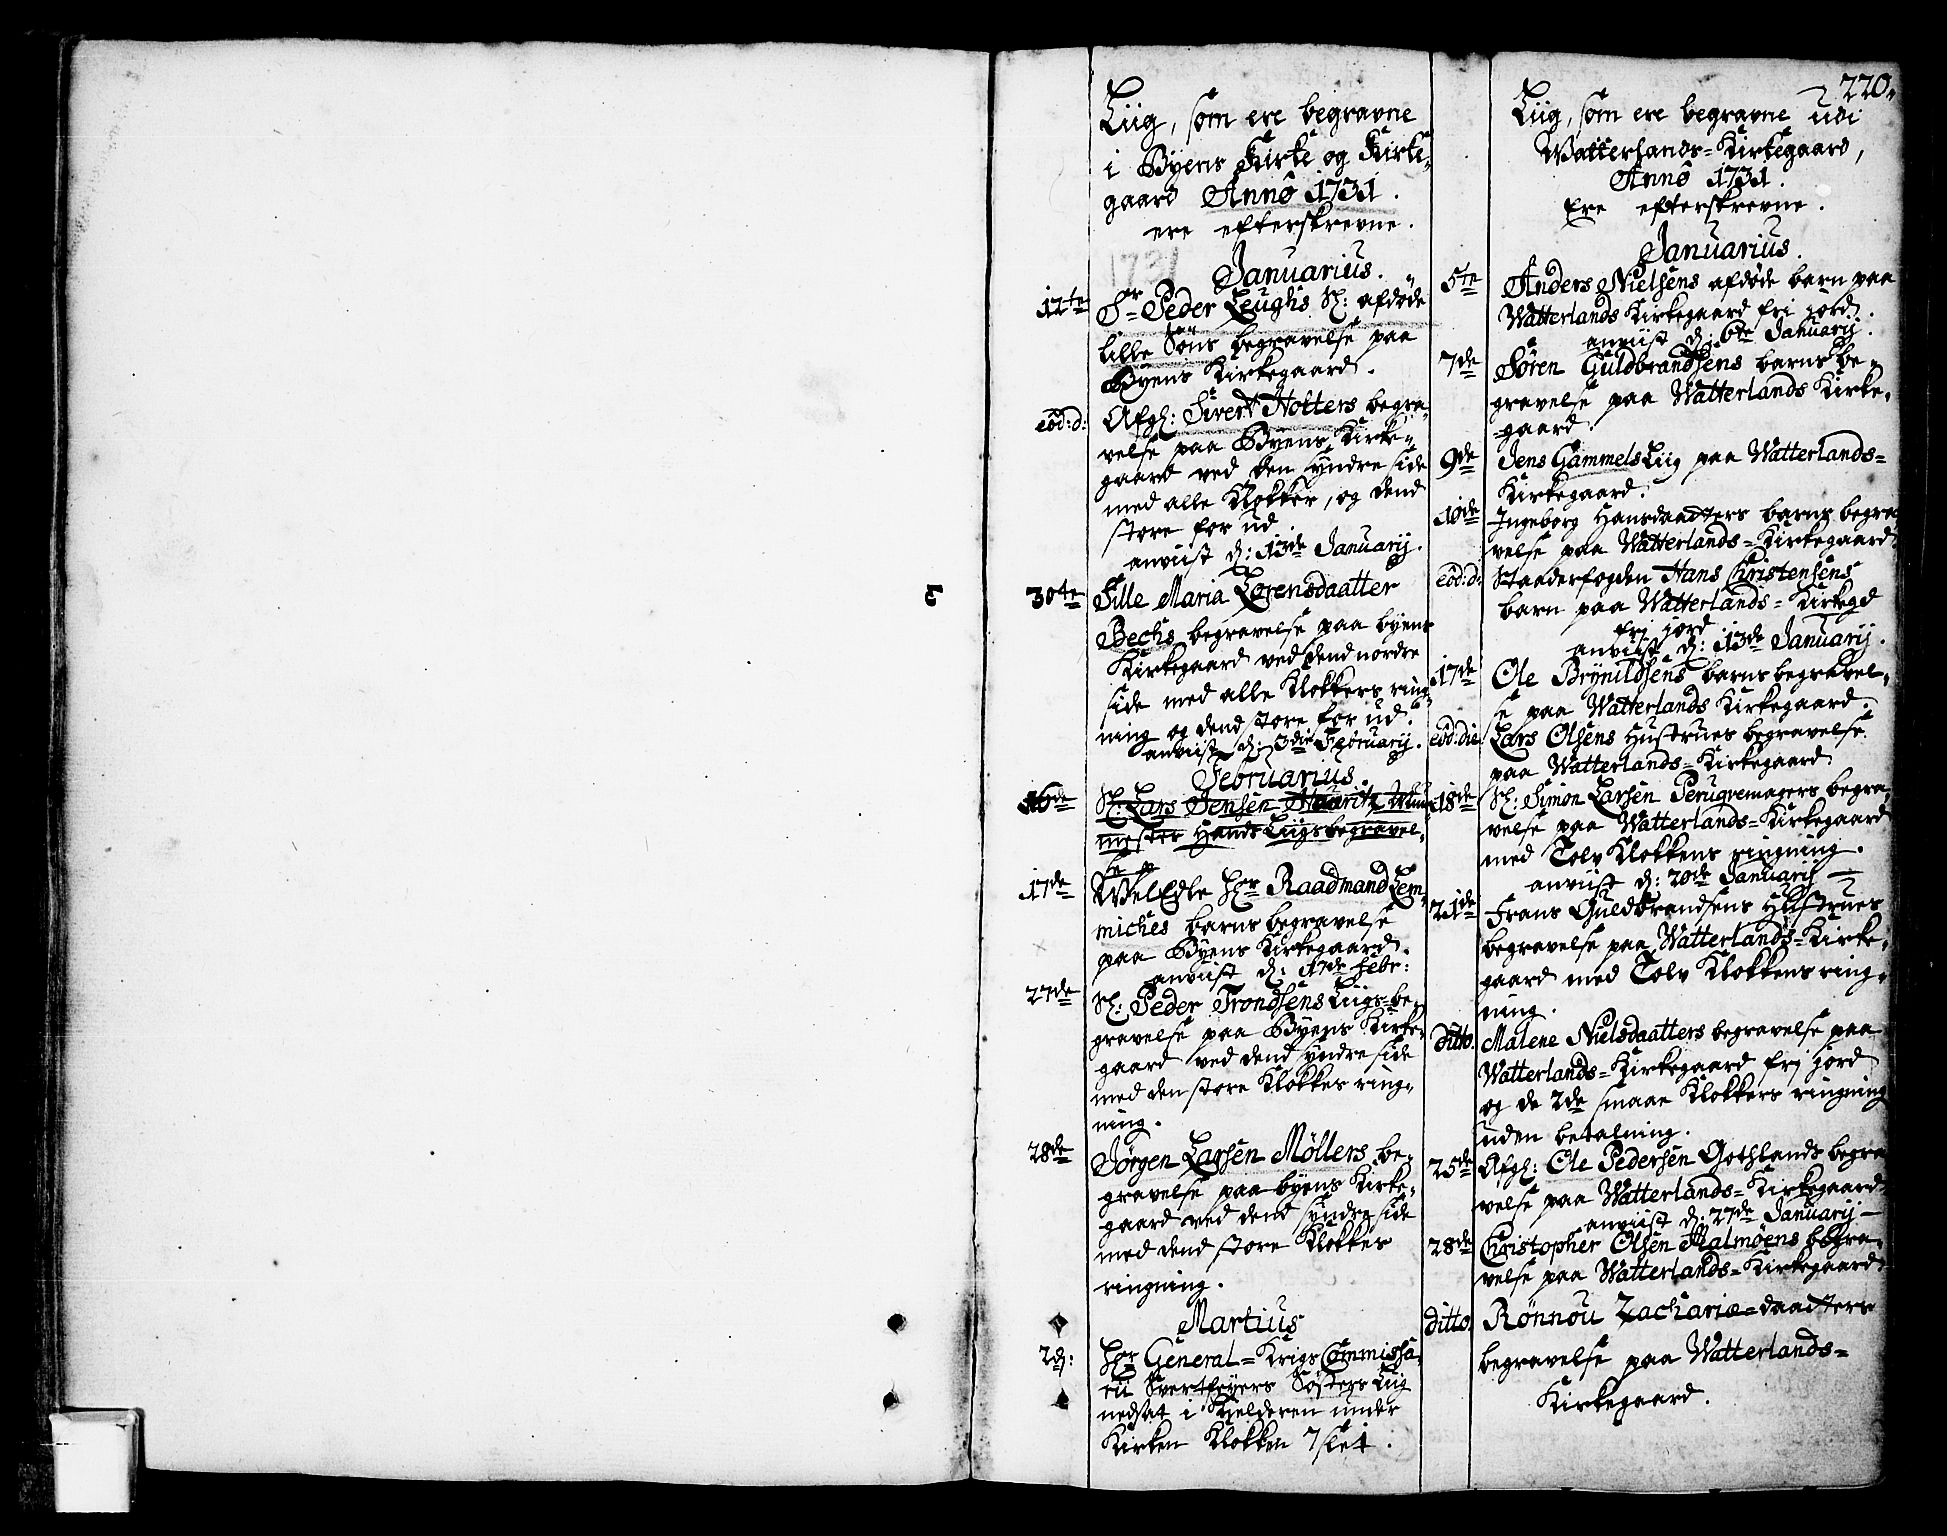 220.
Liig, som ere begravne
i Byens Kirke og Kirke-
gaard Anno 1731.
ere efterskrevne.
1731
Januarius.
12te Sr Peder Leughs Sl: afdøde
lille Søns begravelse paa
Byens Kirkegaard.
eod: d: Afgl: Sivert Hotters begra-
velse paa Byens Kirke-
gaard ved den syndre side
med alle Klokker, og dend
store for ud
anviist d: 13de Januarij.
30te Sille Maria Lorensdaatter
Bechs begravelse paa byens
Kirkegaard ved dend nordre
side med alle Klokkers ring-
ning og dend store for ud.
anviist d: 3die Februarij.
Februarius.
16de Sl: Lars Jensen
mester Hands Liigs begravel-
se
17de WelEdle Hr Raadmand Lem-
miches barns begravelse
paa Byens Kirkegaard.
anviist d: 17de Febr:
27de Sl: Peder Trondsens Liigs be-
gravelse paa Byens Kirke-
gaard ved dend syndre side
med den store Klokkes ring-
ning.
28de Jørgen Larsen Møllers be-
gravelse paa byens Kirke-
gaard ved dend syndre side
med dend store Klokkes
ringning.
Martius
2d: Hr General-Krigs Commissa-
rii Svertfeyers Søsters Liig
nedsat i Kielderen under
Kirken Klokken 7slet.
Liig, som ere begravne udi
Watterlands-Kirkegaard,
Anno 1731.
ere efterskrevne.
Januarius.
5te Anders Nielsens afdøde barn paa
Watterlands Kirkegaard fri jord.
anviist d: 6te Januarij.
7de Søren Guldbrandsens barns be-
gravelse paa Watterlands Kirke-
gaard.
9de Jens Gammels Liig paa Watterlands-
Kirkegaard.
10de Ingeborg Hansdaatters barns begra-
velse paa Watterlands-Kirkegaard
eod: d: Staaderfogden Hans Christensens
barn paa Watterlands-Kirkegd
fri jord
anviist d: 13de Januarij.
17de Ole Brynildsens barns begravel-
se paa Watterlands Kirkegaard.
eod: die. Lars Olsens Hustrues begravelse
paa Watterlands-Kirkegaard
18de Sl: Simon Larsen Perugvemagers begra-
velse paa Watterlands-Kirkegaard
med Tolv Klokkens ringning.
anviist d: 20de Januarij
21de Frans Guldbrandsens Hustrues
begravelse paa Watterlands-Kirke-
gaard med Tolv Klokkens ring-
ning.
ditto. Malene Nielsdaatters begravelse paa
Watterlands-Kirkegaard fri jord
og de 2de smaae Klokkers ringning
uden betalning.
25de Afgl: Ole Pedersen Gothlands begra-
velse paa Watterlands-Kirkegaard
anviist d: 27de Januarij
28de Christopher Olsen Malmøens begra-
velse paa Watterlands-Kirkegaard.
ditto. Rønnou Zachariædaatters
begravelse paa Watterlands-
Kirkegaard.